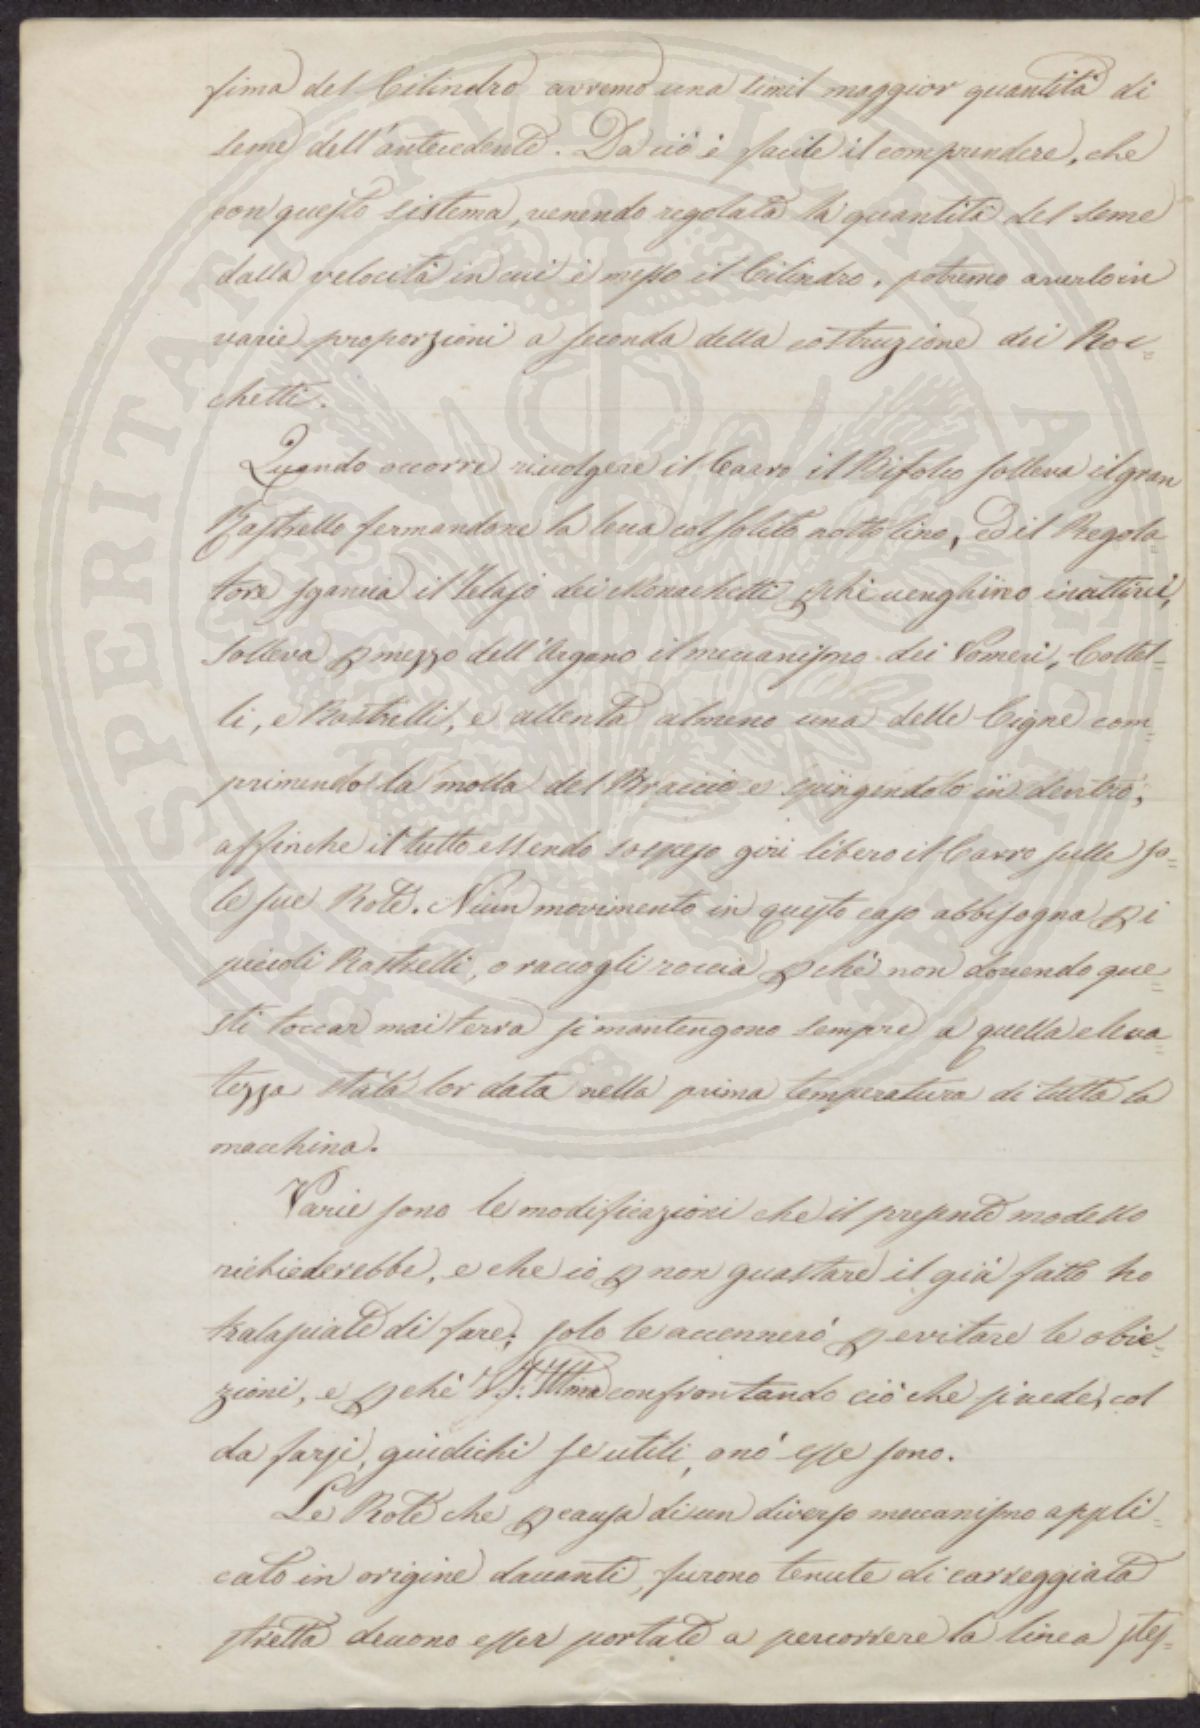 sima del Cilindro avremo una simil maggior quantità di
seme dell'antecedente. Da ciò è facile il comprendere, che
con questo sistema, venendo regolata la quantità del seme
dalla velocità in cui è messo il Cilindro, potremo averlo in
varie proporzioni a seconda della costruzione dei Roc-
chetti.
Quando occorre rivolgere il Carro il Bifolco solleva il gran
Rastrello fermandone la leva col solito nottolino, ed il Regola=
tore sgancia il Telajo dei Monachetti pchè venghino inattivi,
Solleva p mezzo dell'Argano il meccanismo dei Vomeri, Coltel=
li, e Rastrelli, e allenta almeno una delle Cigne com=
primendo la molla del Braccio e spingendolo in dentro,
affinche il tutto essendo sospeso giri libero il Carro sulle so=
le sue Rote. Niun movimento in questo caso abbisogna p i
piccoli Rastrelli, o raccogli roccia pchè non dovendo que=
sti toccar mai terra si mantengono sempre a quella eleva=
tezza stata lor data nella prima temperatura di tutta la
macchina.
Varie sono le modificazioni che il presente modello
richiederebbe, e che io p non guastare il già fatto ho
tralasciate di fare; solo le accennerò p evitare le obie=
zioni, e pchè V. S. Illma confrontando ciò che si vede, col
da farsi, giudichi se utili, o nò esse sono.
Le Rote che p causa di un diverso meccanismo appli=
cato in origine davanti, furono tenute di carreggiata
stretta devono esser portate a percorrere la linea stes=
PROSPERITATI PUBLICAE AUGENDAE